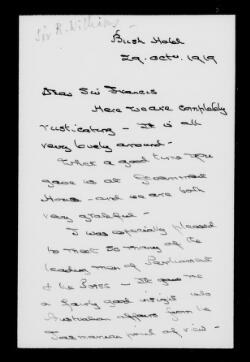 Sir R. Williams
Bush Hotel
29. Octr. 1919
Dear Sir Francis
Here we are completely
rusticating - It is all
very lovely around -
What a good time you
gave us at Government
House - and we are both
very grateful -
I was especially pleased
to meet so many of the
leading men of Parliament
& the Press - It gave me
a fairly good insight into
Australian affairs from the
Tasmanian point of view -